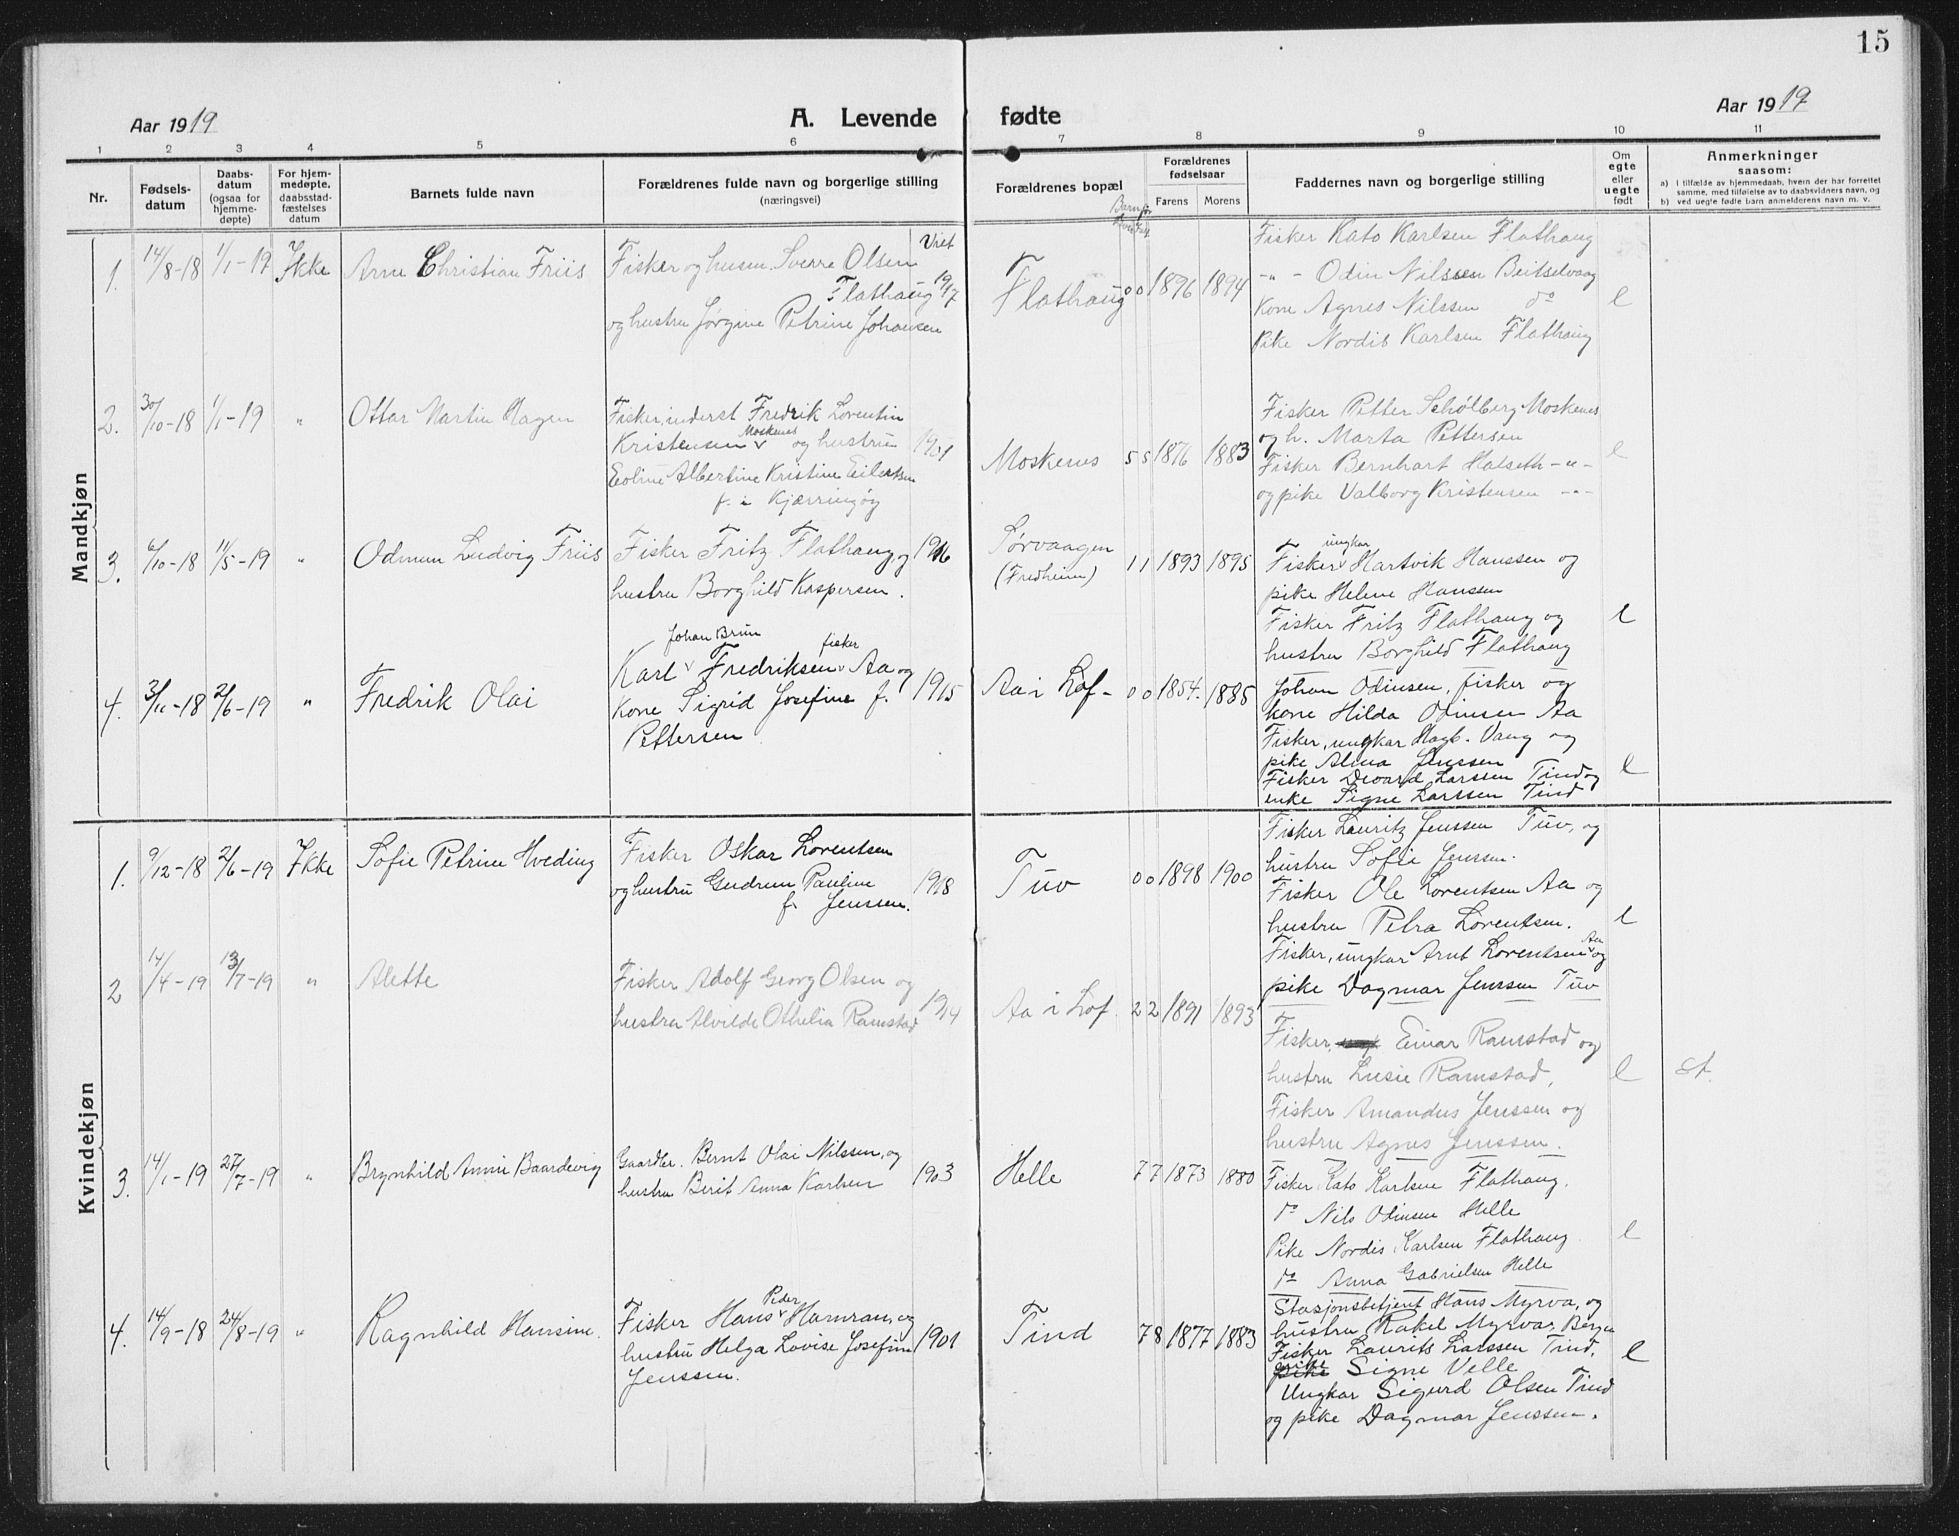 15
Aar 1919
A. Levende fødte
Aar 1919
1 2 3 4 5 6 7 8 9 10 11
Nr.
Fødsels-
datum
Daabs-
datum
(ogsaa for
hjemme-
døpte)
For hjem-
medøpte,
daabsstad-
fæstelses
datum
Barnets fulde navn
Forældrenes fulde navn og borgerlige stilling
(næringsvei)
Viet
Forældrenes bopæl
Forældrenes
fødselsaar
Farens Morens
Faddernes navn og borgerlige stilling
Om
egte
eller
uegte
født
Anmerkninger
saasom:
a) i tilfælde av hjemmedaab, hvem der har forrettet
samme, med tilføielse av to daabsvidners navn, og
b) ved uegte fødte barn anmelderens navn m. v.
Mandkjøn
1. 14/8-18 1/1-19 Ikke Arne Christian Friis
Fisker og husm. Sverre Olsen
Flathaug 1917
og hustru Jørgine Petrine Johansen
Flathaug 0 0 1896 1894
Fisker Kato Karlsen Flathaug
-"- Odin Nilssen Beitselvaag
Kone Agnes Nilssen do
Pike Nordis Karlsen Flathaug
e
2. 30/10-18 1/1-19 " Ottar Martin Hagen
Fisker, inderst Fredrik Lorentin
Kristensen Moskenes og hustru 1901
Eoline Albertine Kristine Eilertsen
f. i Kjærringøy
Moskenes 5 5 1876 1883
Fisker Petter Schølberg Moskenes
og h. Marta Pettersen
Fisker Bernhart Halseth -"-
og pike Valborg Kristensen -"-
e
3. 6/10-18 11/5-19 " Odmun Ludvig Friis
Fisker Fritz Flathaug, og 1916
hustru Borghild Kaspersen.
Sørvaagen
(Fredheim)
1 1 1893 1895
ungkar
Fisker Hartvik Hanssen og
pike Helene Hanssen
Fisker Fritz Flathaug og
hustru Borghild Flathaug
e
4. 3/11-18 2/6-19 " Fredrik Olai
Johan Brun fisker
Karl Fredriksen Aa og
Kone Sigrid Josefine f. 1915
Pettersen
Aa i Lof- 0 0 1854. 1885
Johan Odinsen, fisker og
kone Hilda Odinsen Aa
Fisker, ungkar Hagb. Vang og
pike Alma Jenssen
Fisker Devard Larssen Tind og
enke Signe Larssen Tind
e
Kvindekjøn
1. 9/12-18 2/6-19 Ikke Sofie Petrine Hveding
Fisker Oskar Lorentsen
og hustru Gudrun Pauline 1918
f. Jenssen.
Tuv 0 0 1898 1900
Fisker Lauritz Jenssen Tuv, og
hustru Sofie Jenssen.
Fisker Ole Lorentsen Aa og
hustru Petra Lorentsen.
Fisker, ungkar Arnt Lorentsen Aa og
pike Dagmar Jenssen Tuv
e
2 14/4-19 13/7-19 " Alette
Fisker Adolf Georg Olsen og
hustru Alvilde Othelia Ramstad 1914
Aa i Lof. 2 2 1891 1893
Fisker, Einar Ramstad og
hustru Lusie Ramstad,
Fisker Amandus Jenssen og
hustru Agnes Jenssen.
e st.
3. 14/1-19 27/7-19 " Brynhild Annie Baardevig
Gaardbr. Bernt Olai Nilssen, og
hustru Berit Anna Karlsen 1903
Helle 7 7 1873 1880
Fisker Kato Karlsen Flathaug.
do Nils Odinsen Helle
Pike Nordis Karlsen Flathaug
do Anna Gabrielsen Helle
e
4. 14/9-18 24/8-19 " Ragnhild Hansine.
Fisker Hans Peder Hamran, og
hustru Helga Lovise Josefine 1901
Jenssen.
Tind 7 8 1877 1883
Stasjonsbetjent Hans Myrva, og
hustru Rakel Myrva, Bergen
Fisker Laurits Larssen Tind,
pike Signe Velle
Ungkar Sigurd Olsen Tind
og pike Dagmar Jenssen.
e